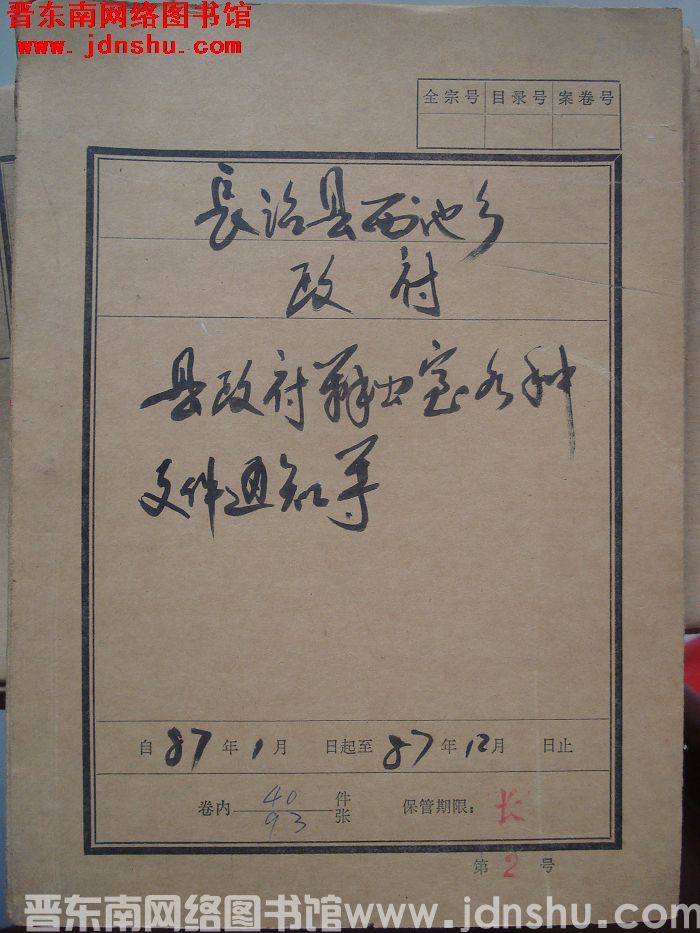 晋东南网络图书馆
www.jdnshu.com
全宗号 目录号 案卷号
長治县西池乡
政府
县政府办公室各种
文件通知等
自87年1月 日起至87年12月 日止
卷内 40 件 保管期限：长
93 张
第2号
晋东南网络图书馆www.jdnshu.com